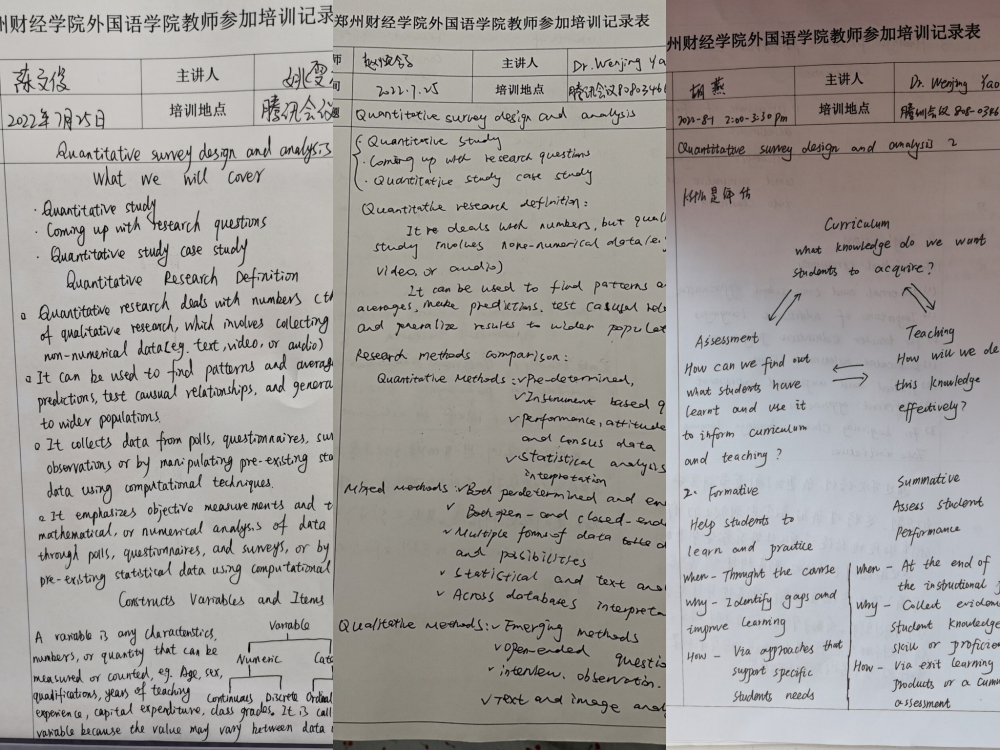 州财经学院外国语学院教师参加培训记录
陈文俊
主讲人
姚雯
2022年7月25日
培训地点
腾讯会议
Quantitative survey design and analysis
What we will cover
· Quantitative study
· Coming up with research questions
· Quantitative study case study
Quantitative Research Definition
Quantitative research deals with numbers
of qualitative research, which involves collecting
non-numerical data (eg. text, video, or audio)
It can be used to find patterns and averag
predictions, test causual relationships, and genera
to wider populations.
It collects data from polls, questionnaires, sur
observations or by manipulating pre-existing sta
data using computational techniques.
It emphasizes objective measurements and t
mathematical, or numercal analysis of data
through polls, questionnaires, and surveys, or by
pre-existing statistical data using computational
Constructs Variables and Items
A variable is any characteristics,
numbers, or quantity that can be
measured or counted, eg. Age, sex,
qualifications, years of teaching
experience, capital expenditure, class grades. It is call
variable because the value may vary between data
Variable
Numeric Cate
Continuous Discrete Ordinal
郑州财经学院外国语学院教师参加培训记录表
师
主讲人
Dr. Wenjing Ya
间
2022.7.25
培训地点
腾讯会议8080346
题
Quantitative survey design and analysis
· Quantitative study
· Coming up with research questions
· Quantitative study case study
Quantitative research definition:
deals with numbers, but qual
study involves none-numerical data (e.
video, or audio)
It can be used to find patterns a
averages, make predictions, test casual rel
and generalize results to wider populat
Research methods comparison:
Quantitative Methods: ✓ Pre-determined,
✓ Instrument based q
✓ performance, attitude
and census data
✓ statistical analysis
interpretation
Mixed methods: ✓ Both perdetermined and em
✓ Both open- and closed-ende
✓ Multiple forms of data
and possibilities
✓ Statistical and text ana
✓ Across databases interpreta
Qualitative Methods: ✓ Emerging methods
✓ open-ended questio
✓ interview, observation.
✓ Text and image ana
州财经学院外国语学院教师参加培训记录表
胡燕
主讲人
Dr. Wenjing Yao
2022-8-1 2:00-3:30 pm
培训地点
腾讯会议 808-0346
Quantitative survey design and analysis 2
什么是评估
Curriculum
what knowledge do we want
students to acquire?
Assessment
How can we find out
what students have
learnt and use it
to inform curriculum
and teaching?
Teaching
How will we de
this knowledge
effectively?
2. Formative
Help students to
learn and practice
when - Throught the course
why - Identify gaps and
improve learning
How - Via approaches that
support specific
students needs
Summative
Assess student
Performance
when - At the end of
the instructional
why - Collect eviden
student knowledge
skill or proficien
How - Via exit learning
products or a cum
assessment